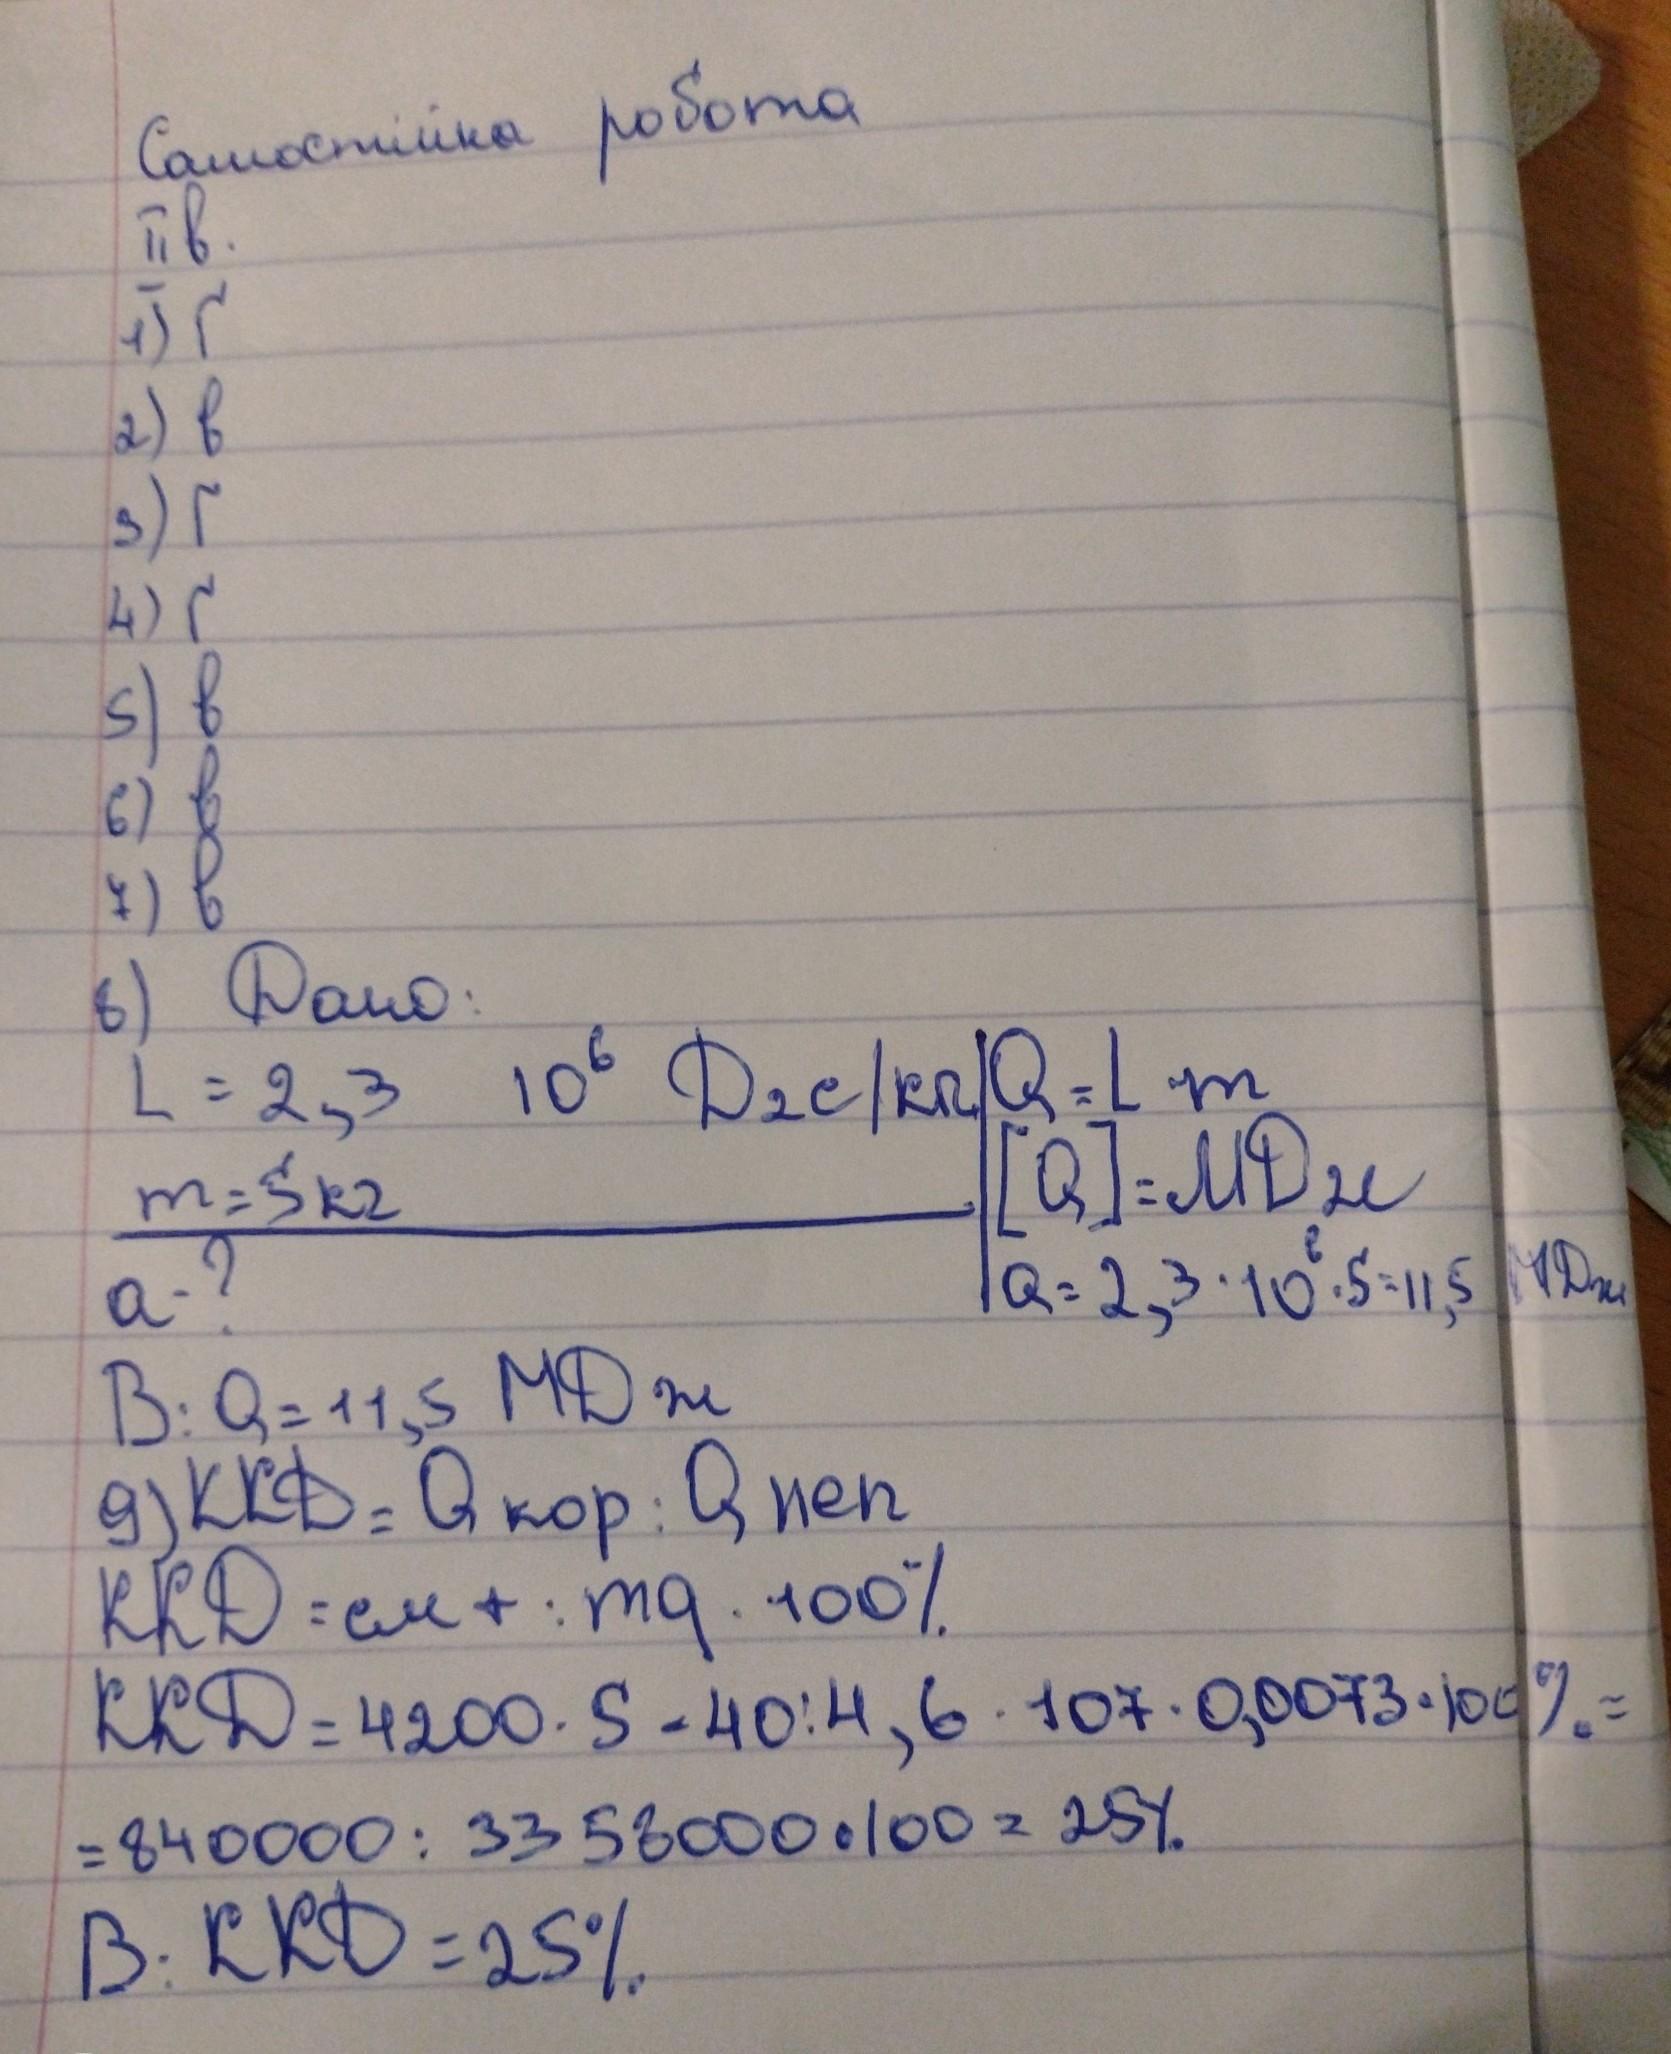 Самостійна робота
II в.
1) Г
2) в
3) Г
4) Г
5) в
6) в
7) в
8) Дано:
L = 2,3 10⁶ Дж/кг
m = 5 кг
a - ?
Q = L · m
[Q] = МДж
Q = 2,3 · 10⁶ · 5 = 11,5 МДж
В: Q = 11,5 МДж
9) ККД = Q кор : Q неп
ККД = см t : mq · 100%
ККД = 4200 · 5 - 40 : 4,6 · 107 · 0,0073 · 100%. =
= 840000 : 3358000 · 100 = 25%.
В: ККД = 25%.